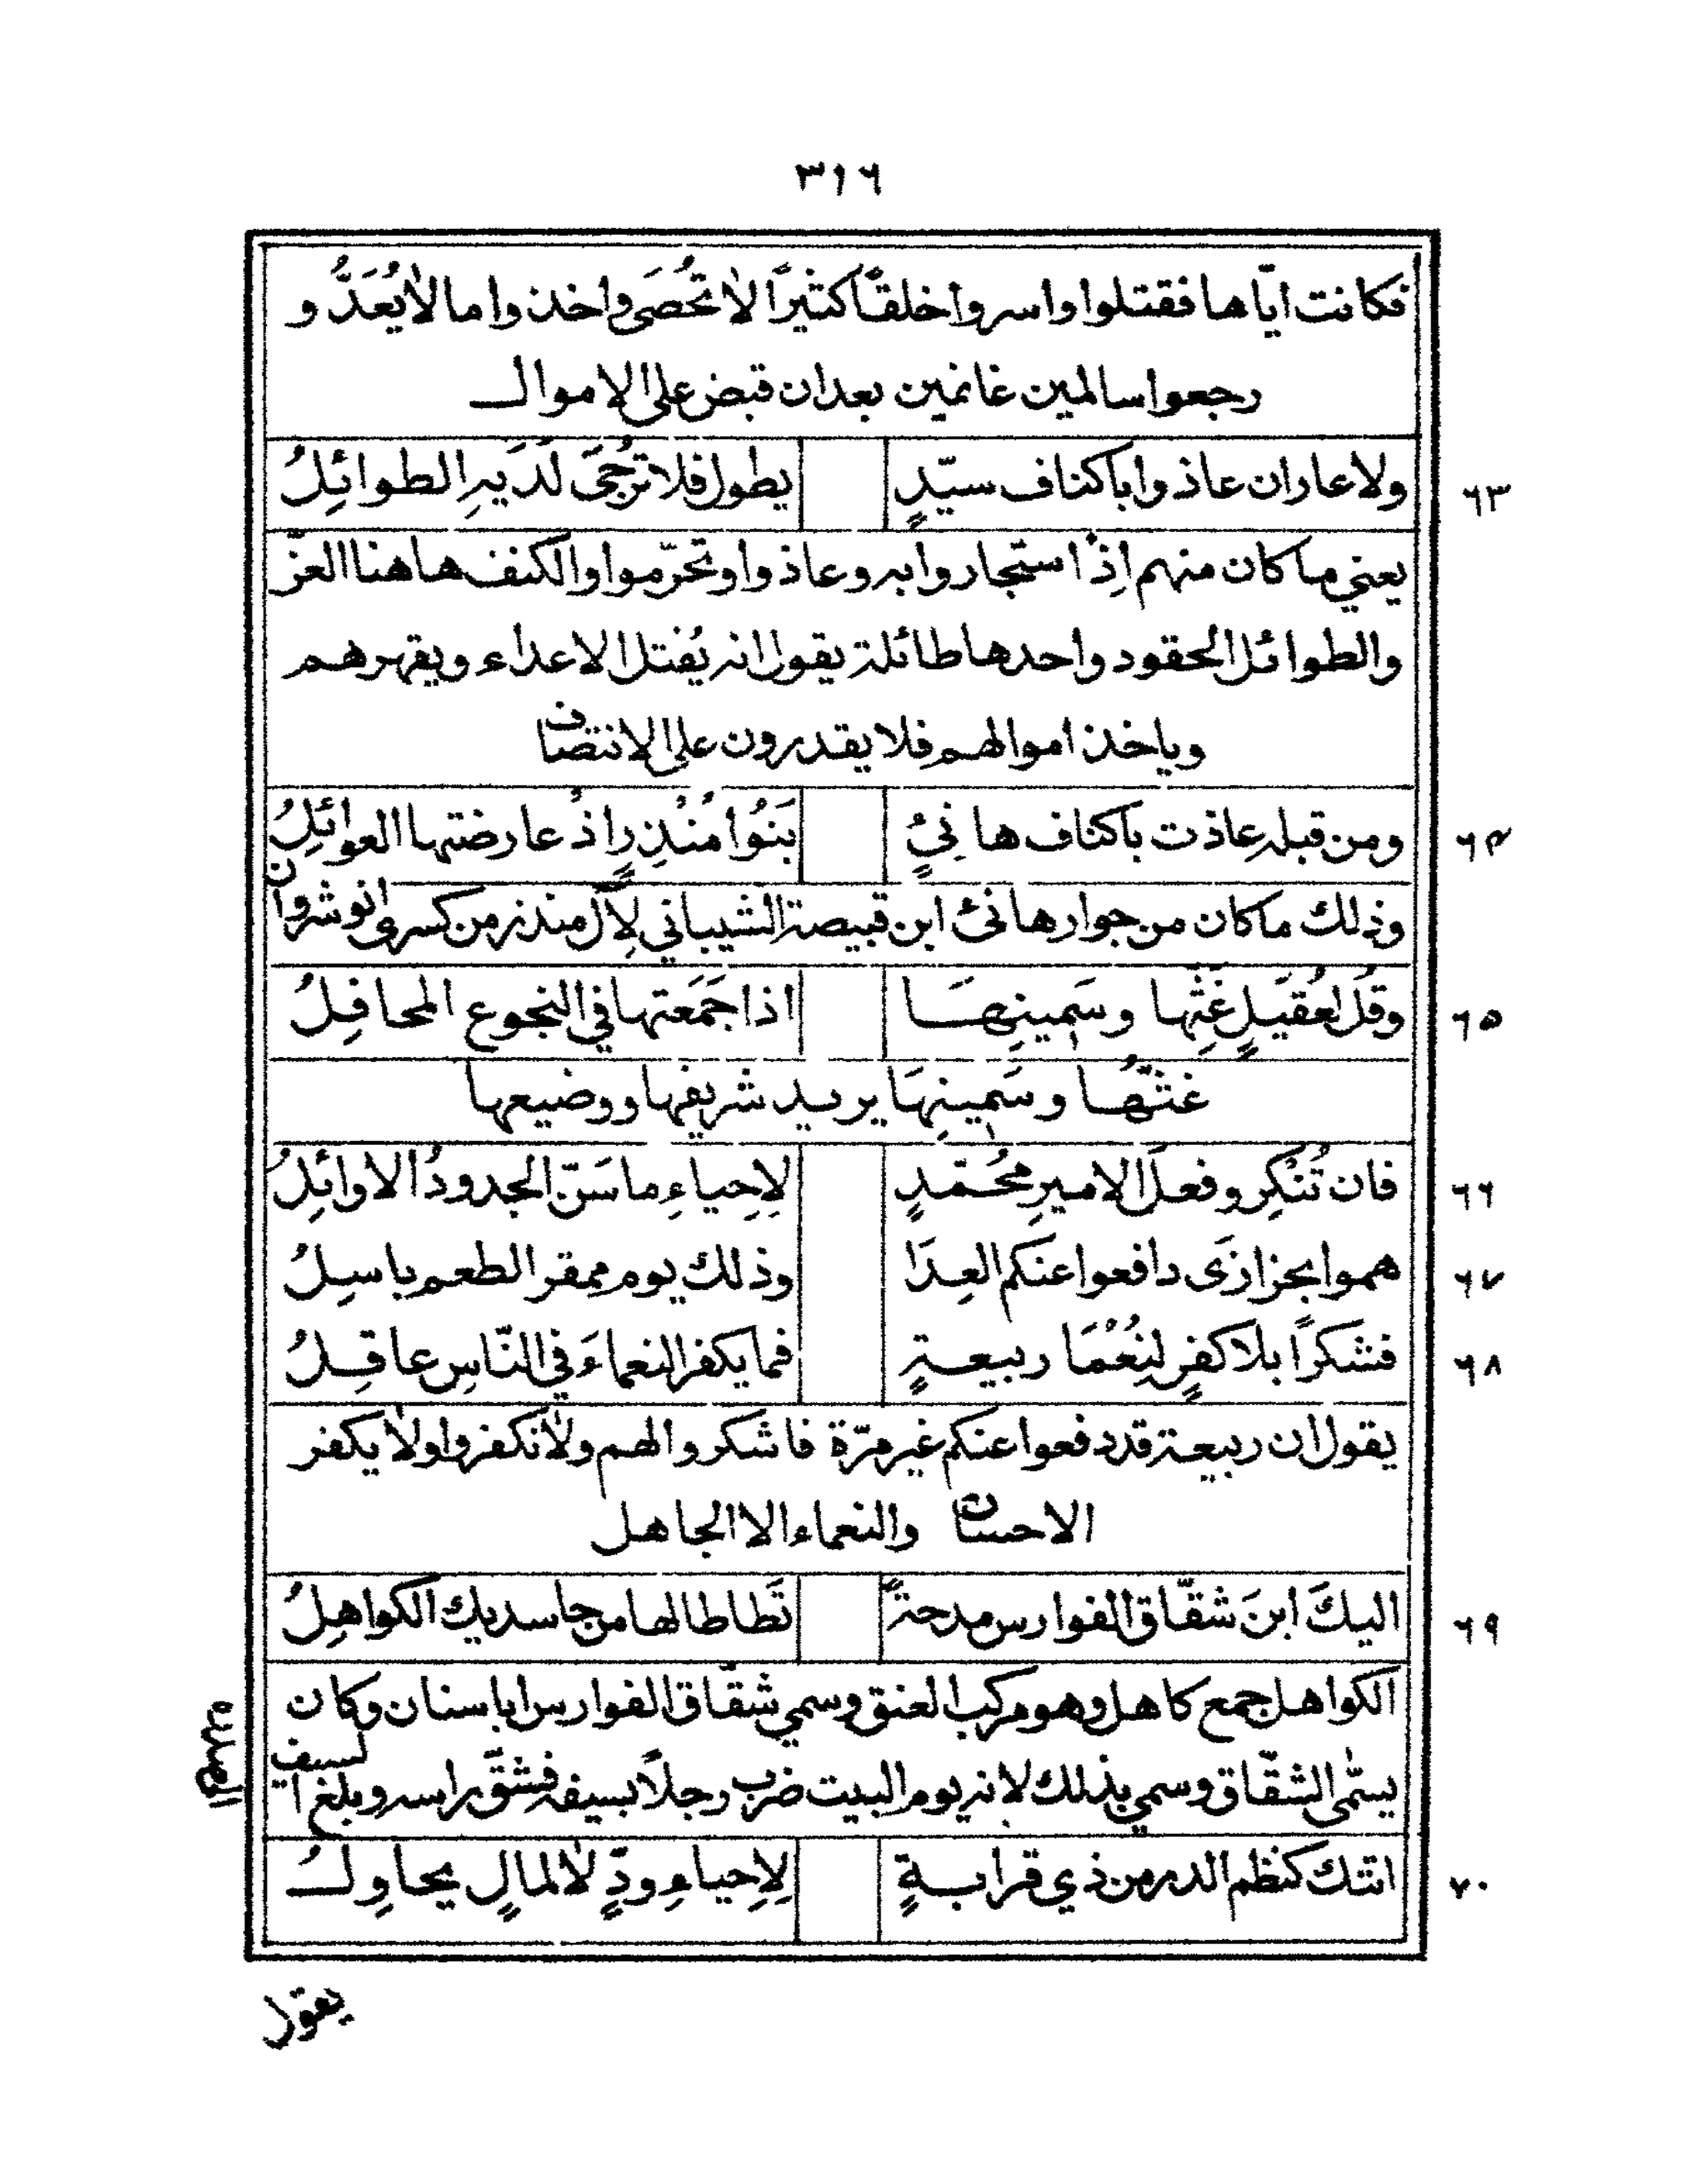 ٣١٦
فكانت ايّاها فقتلوا واسروا خلقًا كثيرًا لا تُحصَى واخذوا ما لا يُعَدُّ و
رجعوا سالمين غانمين بعد ان قبض على الاموال
ولا عار ان عاذوا باكناف سيّدٍ يطول فلا تُرجَى لَدَيهِ الطوائِلُ ٦٣
يعني ما كان منهم اِذا استجاروا به وعاذوا وتحرّموا والكنف هاهنا العزّ
والطوائل الحقود واحدها طائلة يقول انه يُقتل الاعداء ويقهرهم
وياخذ اموالهم فلا يقدرون على الانتصاف
ومن قبله عاذت باكناف هانِئٍ بَنُوا مُنْذِرٍ اذْ عارضتها العوائِلُ ٦٤
وذلك ما كان من جوار هانئ ابن قبيصة الشيباني لِآل منذر من كسرى انوشروان
وقُل لعُقَيلٍ غَثِّها وسَمِينِهَا اذا جَمَعَتها في النجوع المحافِلُ ٦٥
غثّها وسَمِينِهَا يريد شريفها ووضيعها
فان تُنْكِروا فعلَ الامير محُمّدٍ لِاِحياءِ ما سَنّ الجدودُ الاوائِلُ ٦٦
هموا بجزازَى دافعوا عنكم العِدَا وذلك يوم ممقر الطعم باسِلُ ٦٧
فشكرًا بلا كفرٍ لنِعُمَا ربيعةٍ فما يكفر النعماءَ في النّاسِ عاقِلُ ٦٨
يقول ان ربيعة قد دفعوا عنكم غير مرّة فاشكروا لهم ولا تكفروا ولا يكفر
الاحسان والنعماء الا الجاهل
اليكَ ابنَ شقّاق الفوارس مدحةً تَطاطا لها من حاسديك الكواهِلُ ٦٩
الكواهل جمع كاهل وهو مركب العنق وسمي شقّاق الفوارس ابا سنان وكان
يسمّى الشقّاق وسمي بذلك لانه يوم البيت ضرب رجلاً بسيفه فشقّ راسه وبلغ السيف
اتتك كنظم الدر من ذي قرابةٍ لِاِحياءِ ودٍّ لا لمالٍ يحاوِلُ ٧٠
يقول